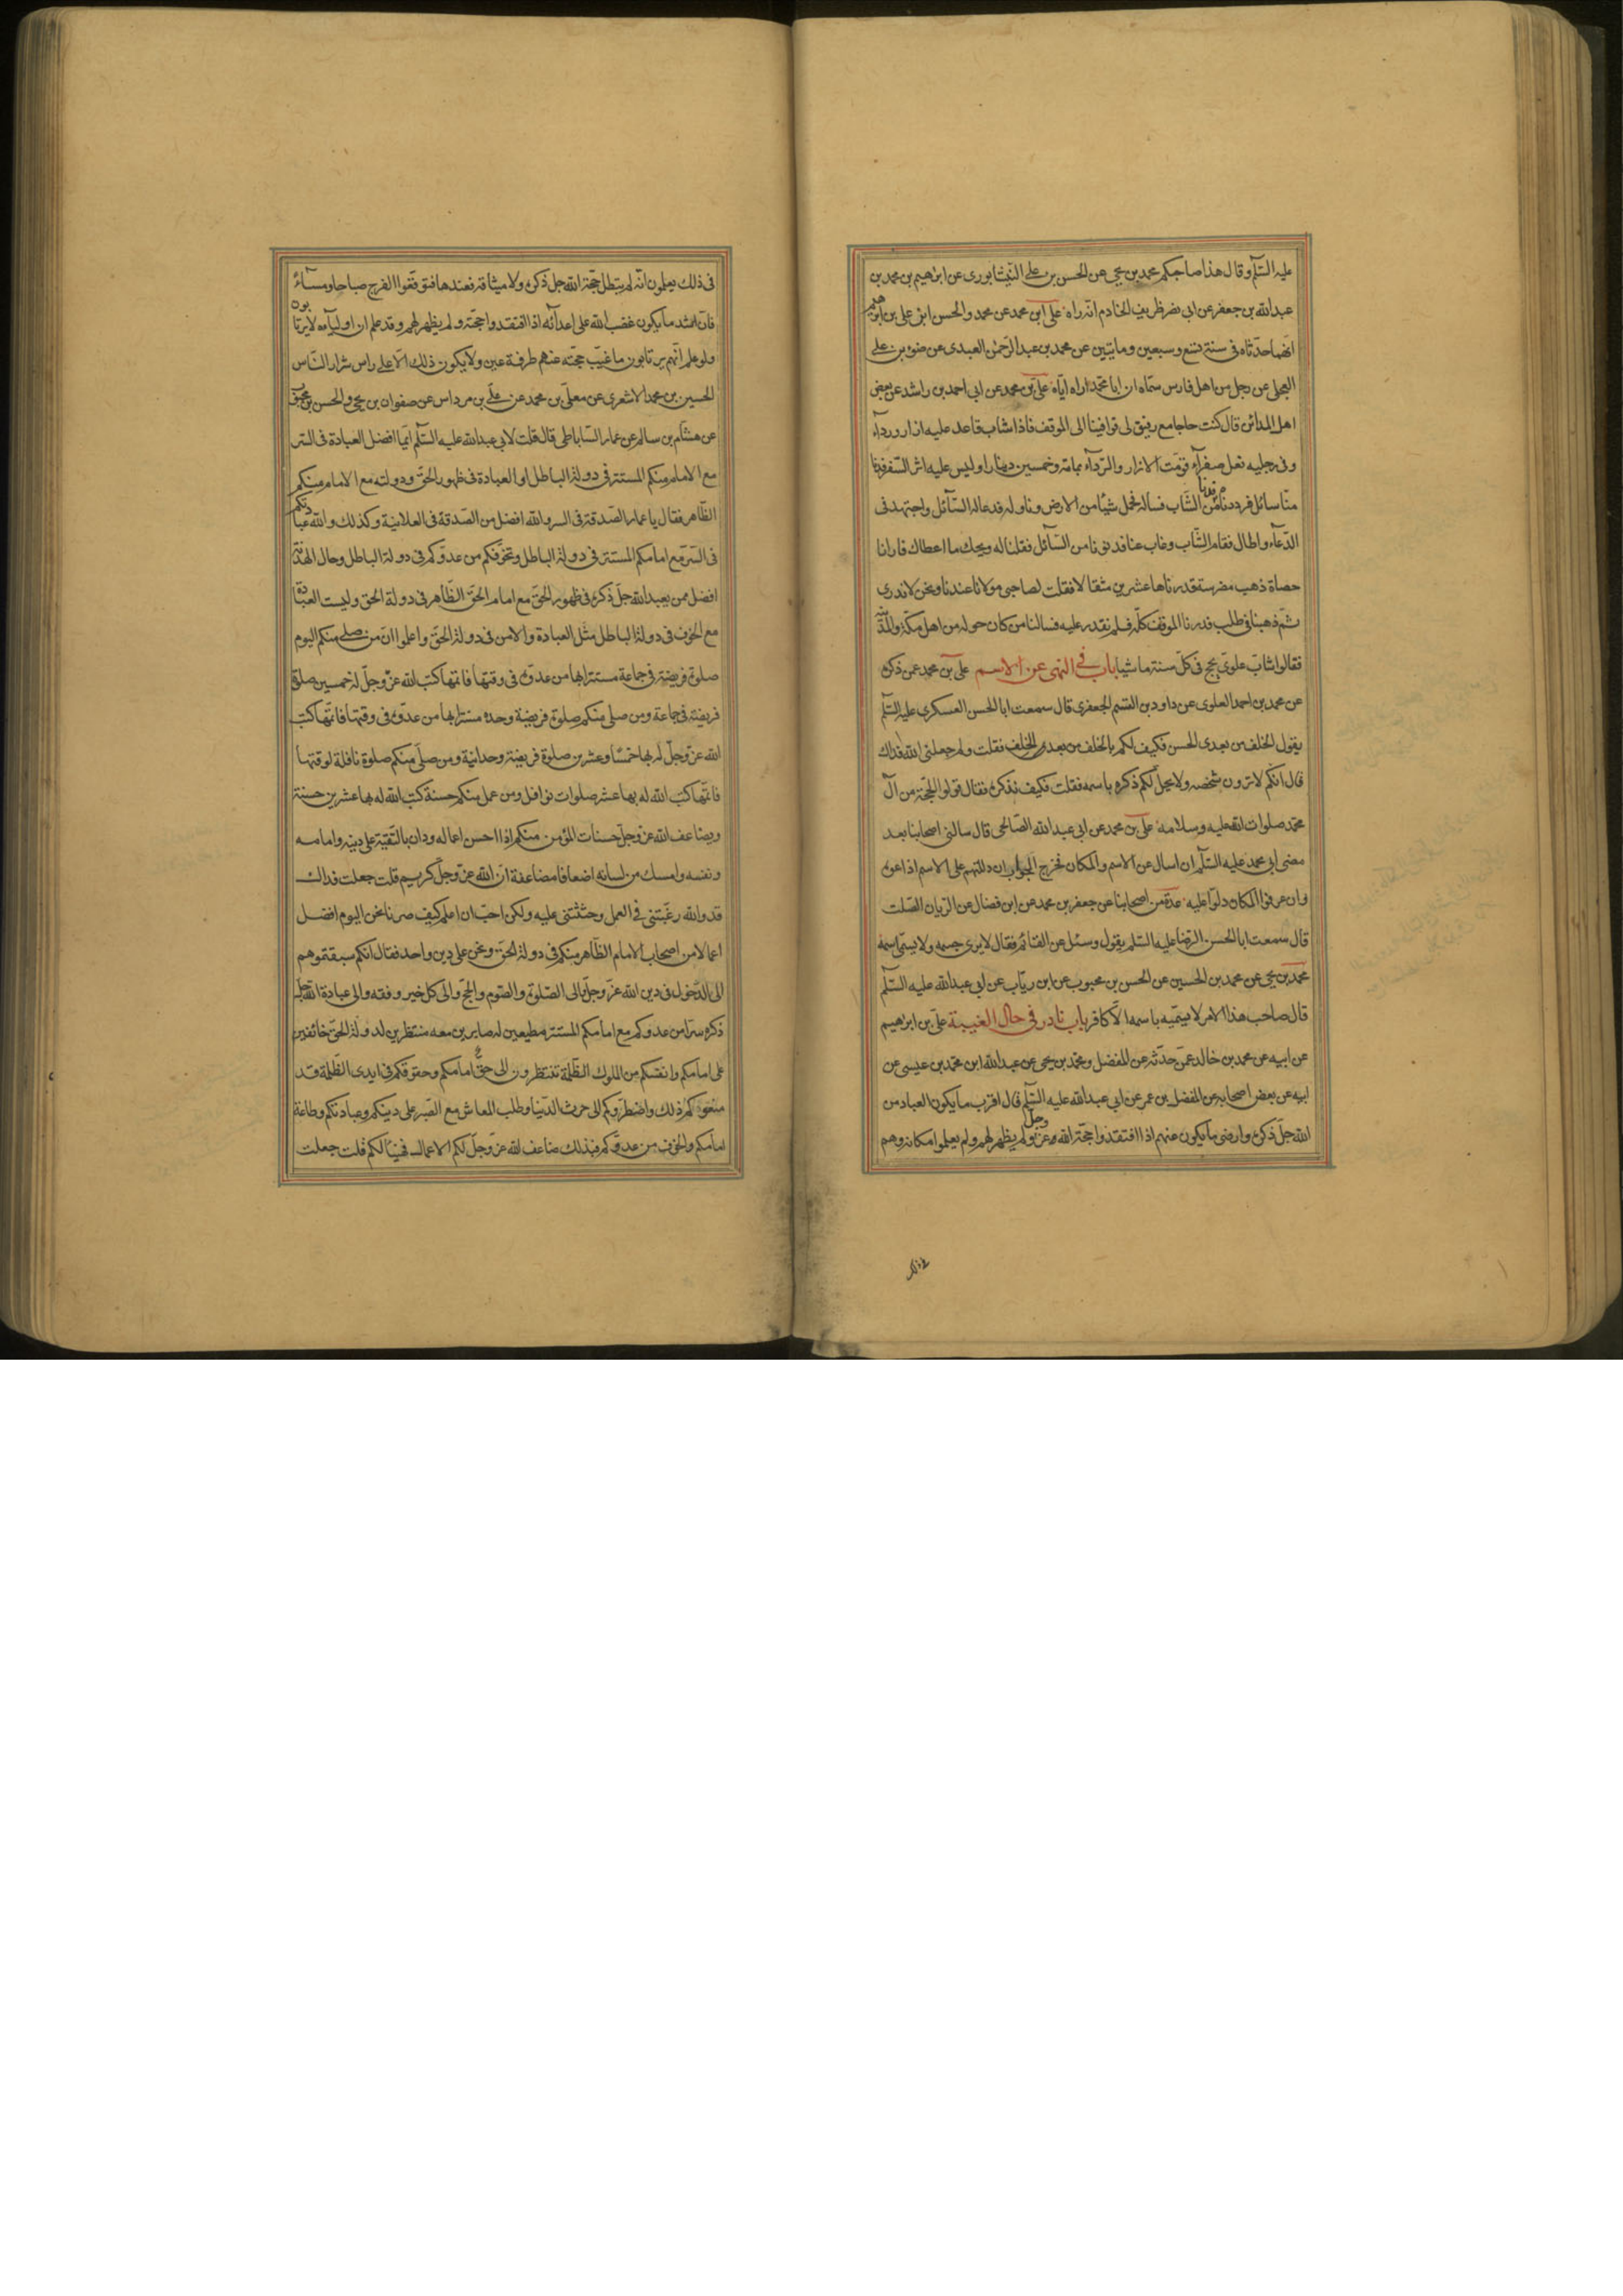 عليه السّلم وقال هذا صاحبكم محمد بن يحيى عن الحسن بن على النّيشابورى عن ابرهيم بن محمد بن
عبدالله بن جعفر عن ابى نصر ظريف الخادم انّه راه على ابن محمد عن محمد والحسن ابنى على بن ابرهيم
انّهما حدّثاه فى سنة تسع وسبعين ومايتين عن محمد بن عبد الرّحمن العبدى عن ضوء بن على
العجلى عن رجل من اهل فارس سمّاه ان ابا محمّد اراه ايّاه علىّ بن محمد عن ابى احمد بن راشد عن بعض
اهل المدائن قال كنت حاجا مع رفيق لى فوافينا الى الموقف فاذا شاب قاعد عليه ازار ورداء
وفى رجليه نعل صفراء قوّمت الازار والرّداء بمائة وخمسين دينارا وليس عليه اثر السّفر فدنا
منّا سائل فرددناه فدنا من الشّاب فساله فحمل شيئا من الارض وناوله فدعا له السّائل واجتهد فى
الدّعاء واطال فقام الشّاب وغاب عنا فدنونا من السّائل فقلنا له ويحك ما اعطاك فارانا
حصاة ذهب مضرسة قدرناها عشرين مثقالا فقلت لصاحبى مولانا عندنا ونحن لا ندرى
ثمّ ذهبنا فى طلبه فدرنا الموقف كلّه فلم نقدر عليه فسالنا من كان حوله من اهل مكّة والمدينة
فقالوا شابّ علوىّ يحج فى كلّ سنة ماشيا باب فى النهى عن الاسم على بن محمد عمن ذكره
عن محمد بن احمد العلوى عن داود بن القسم الجعفرى قال سمعت ابا الحسن العسكرى عليه السّلم
يقول الخلف من بعدى الحسن فكيف لكم بالخلف من بعد الخلف فقلت ولم جعلنى الله فداك
قال انّكم لا ترون شخصه ولا يحلّ لكم ذكره باسمه فقلت فكيف نذكره فقال قولوا الحجّة من آل
محمّد صلوات الله عليه وسلامه علىّ بن محمد عن ابى عبد الله الصّالحى قال سالنى اصحابنا بعد
مضى ابى محمد عليه السّلم ان اسال عن الاسم والمكان فخرج الجواب ان دللتهم على الاسم اذاعوه
وان عرفوا المكان دلّوا عليه عدّة من اصحابنا عن جعفر بن محمد عن ابن فضال عن الرّيان الصّلت
قال سمعت ابا الحسن الرّضا عليه السّلم يقول وسئل عن القائم فقال لا يرى جسمه ولا يسمّى اسمه
محمد بن يحيى عن محمد بن الحسين عن الحسن بن محبوب عن ابن رياب عن ابى عبدالله عليه السّلم
قال صاحب هذا الامر لا يسمّيه باسمه الّا كافر باب نادر فى حال الغيبة علىّ بن ابراهيم
عن ابيه عن محمد بن خالد عمّن حدّثه عن المفضل ومحمّد بن يحيى عن عبدالله ابن محمّد بن عيسى عن
ابيه عن بعض اصحابه عن المفضل بن عمر عن ابى عبدالله عليه السّلم قال اقرب ما يكون العباد من
الله جلّ ذكره وارضى ما يكون عنهم اذا افتقدوا حجّة الله عزّ وجلّ ولم يظهر لهم ولم يعلموا مكانه وهم
فى ذلك يعلمون انّه لم يبطل حجّة الله جل ذكره ولا ميثاقه فعندها فتوقّعوا الفرج صباحا ومساء
فانّ اشد ما يكون غضب الله على اعدائه اذا افتقدوا حجّته ولم يظهر لهم وقد علم ان اولياءه لا يرتابون
ولو علم انّهم يرتابون ما غيّب حجّته عنهم طرفة عين ولا يكون ذلك الّا على راس شرار النّاس
الحسين بن محمد الاشعرى عن معلّى بن محمد عن علىّ بن مرداس عن صفوان بن يحيى والحسن بن محبوب
عن هشام بن سالم عن عمار السّاباطى قال قلت لابى عبدالله عليه السّلم ايّما افضل العبادة فى السّر
مع الامام منكم المستتر فى دولة الباطل او العبادة فى ظهور الحق ودولته مع الامام منكم
الظّاهر فقال يا عمار الصّدقة فى السر والله افضل من الصّدقة فى العلانية وكذلك والله عبادتكم
فى السّر مع امامكم المستتر فى دولة الباطل وتخوّفكم من عدوّكم فى دولة الباطل وحال الهدنة
افضل ممن يعبد الله جلّ ذكره فى ظهور الحقّ مع امام الحقّ الظّاهر فى دولة الحق وليست العبادة
مع الخوف فى دولة الباطل مثل العبادة والامن فى دولة الحقّ واعلموا انّ من صلى منكم اليوم
صلوة فريضة فى جماعة مستترا بها من عدوّه فى وقتها فاتمّها كتب الله عزّ وجلّ له خمسين صلوة
فريضة فى جماعة ومن صلى منكم صلوة فريضة وحده مستترا بها من عدوّه فى وقتها فاتمّها كتب
الله عزّ وجلّ له بها خمسا وعشرين صلوة فريضة وحدانيّة ومن صلّى منكم صلوة نافلة لوقتها
فاتمّها كتب الله له بها عشر صلوات نوافل ومن عمل منكم حسنة كتب الله له بها عشرين حسنة
ويضاعف الله عزّ وجلّ حسنات المؤمن منكم اذا احسن اعماله ودان بالتّقية على دينه وامامه
ونفسه وامسك من لسانه اضعافا مضاعفة انّ الله عزّ وجلّ كريم قلت جعلت فداك
قد والله رغّبتنى فى العمل وحثثتنى عليه ولكن احبّ ان اعلم كيف صرنا نحن اليوم افضل
اعمالا من اصحاب الامام الظّاهر منكم فى دولة الحقّ ونحن على دين واحد فقال انكم سبقتموهم
الى الدّخول فى دين الله عزّ وجلّ والى الصّلوة والصّوم والحجّ والى كل خير وفقه والى عبادة الله جلّ
ذكره سرّا من عدوكم مع امامكم المستتر مطيعين له صابرين معه منتظرين لدولة الحقّ خائفين
على امامكم وانفسكم من الملوك الظّلمة تنتظرون الى حقّ امامكم وحقوقكم فى ايدى الظّلمة قد
منعوكم ذلك واضطرّوكم الى حرث الدّنيا وطلب المعاش مع الصّبر على دينكم وعبادتكم وطاعة
امامكم والخوف من عدوّكم فبذلك ضاعف الله عزّ وجلّ لكم الاعمال فهنيئا لكم قلت جعلت